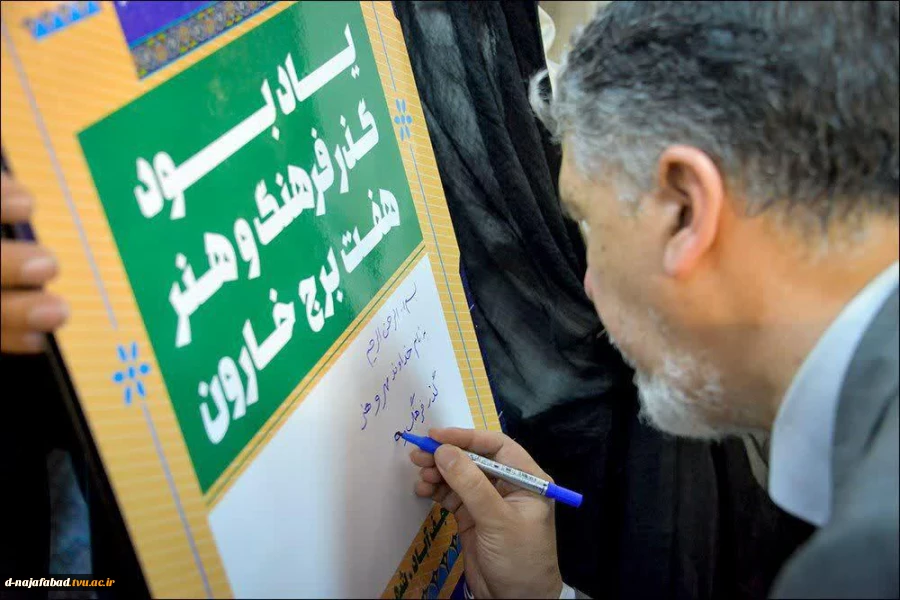 یادبود
گذر فرهنگ و هنر
هفت برج خارون
بسم الله الرحمن الرحیم
به نام خداوند مهر و هنر
گذر فرهنگ
d-najafabad.tvu.ac.ir